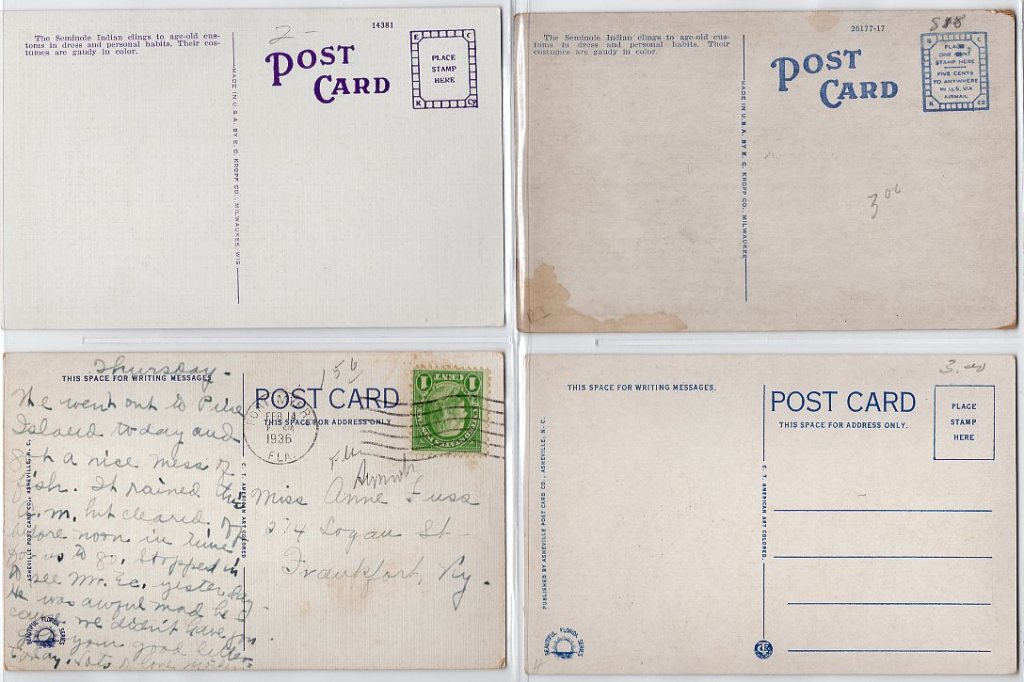 14381
The Seminole Indian clings to age-old cus-
toms in dress and personal habits. Their cos-
tumes are gaudy in color.
2-
POST
CARD
E C
PLACE
STAMP
HERE
K Co
MADE IN U.S.A. BY E. C. KROPP CO., MILWAUKEE, WIS.
26177-17
The Seminole Indian clings to age-old cus-
toms in dress and personal habits. Their
costumes are gaudy in color.
POST
CARD
PLACE
ONE CENT
STAMP HERE
FIVE CENTS
TO ANYWHERE
IN U.S. VIA
AIRMAIL
MADE IN U.S.A. BY E. C. KROPP CO., MILWAUKEE
3 00
Thursday-
THIS SPACE FOR WRITING MESSAGES
We went out to Pine
Island today and
a nice mess of
fish. It rained this
a.m. but cleared off
before noon in time
for us to go. Stopped in
to see Mr. Ec. yesterday
He was awful mad be
cause we didn't have you
your good letter
today. Lots o love
POST CARD
THIS SPACE FOR ADDRESS ONLY.
FEB 14
1936
FLA.
1 CENT 1
Miss Anne
274 Logan St-
Frankfort, Ky.
PUBLISHED BY ASHEVILLE POST CARD CO., ASHEVILLE, N. C.
C. T. AMERICAN ART COLORED
BEAUTIFUL FLORIDA SERIES
THIS SPACE FOR WRITING MESSAGES.
POST CARD
THIS SPACE FOR ADDRESS ONLY.
PLACE
STAMP
HERE
PUBLISHED BY ASHEVILLE POST CARD CO., ASHEVILLE, N. C.
C. T. AMERICAN ART COLORED
BEAUTIFUL FLORIDA SERIES